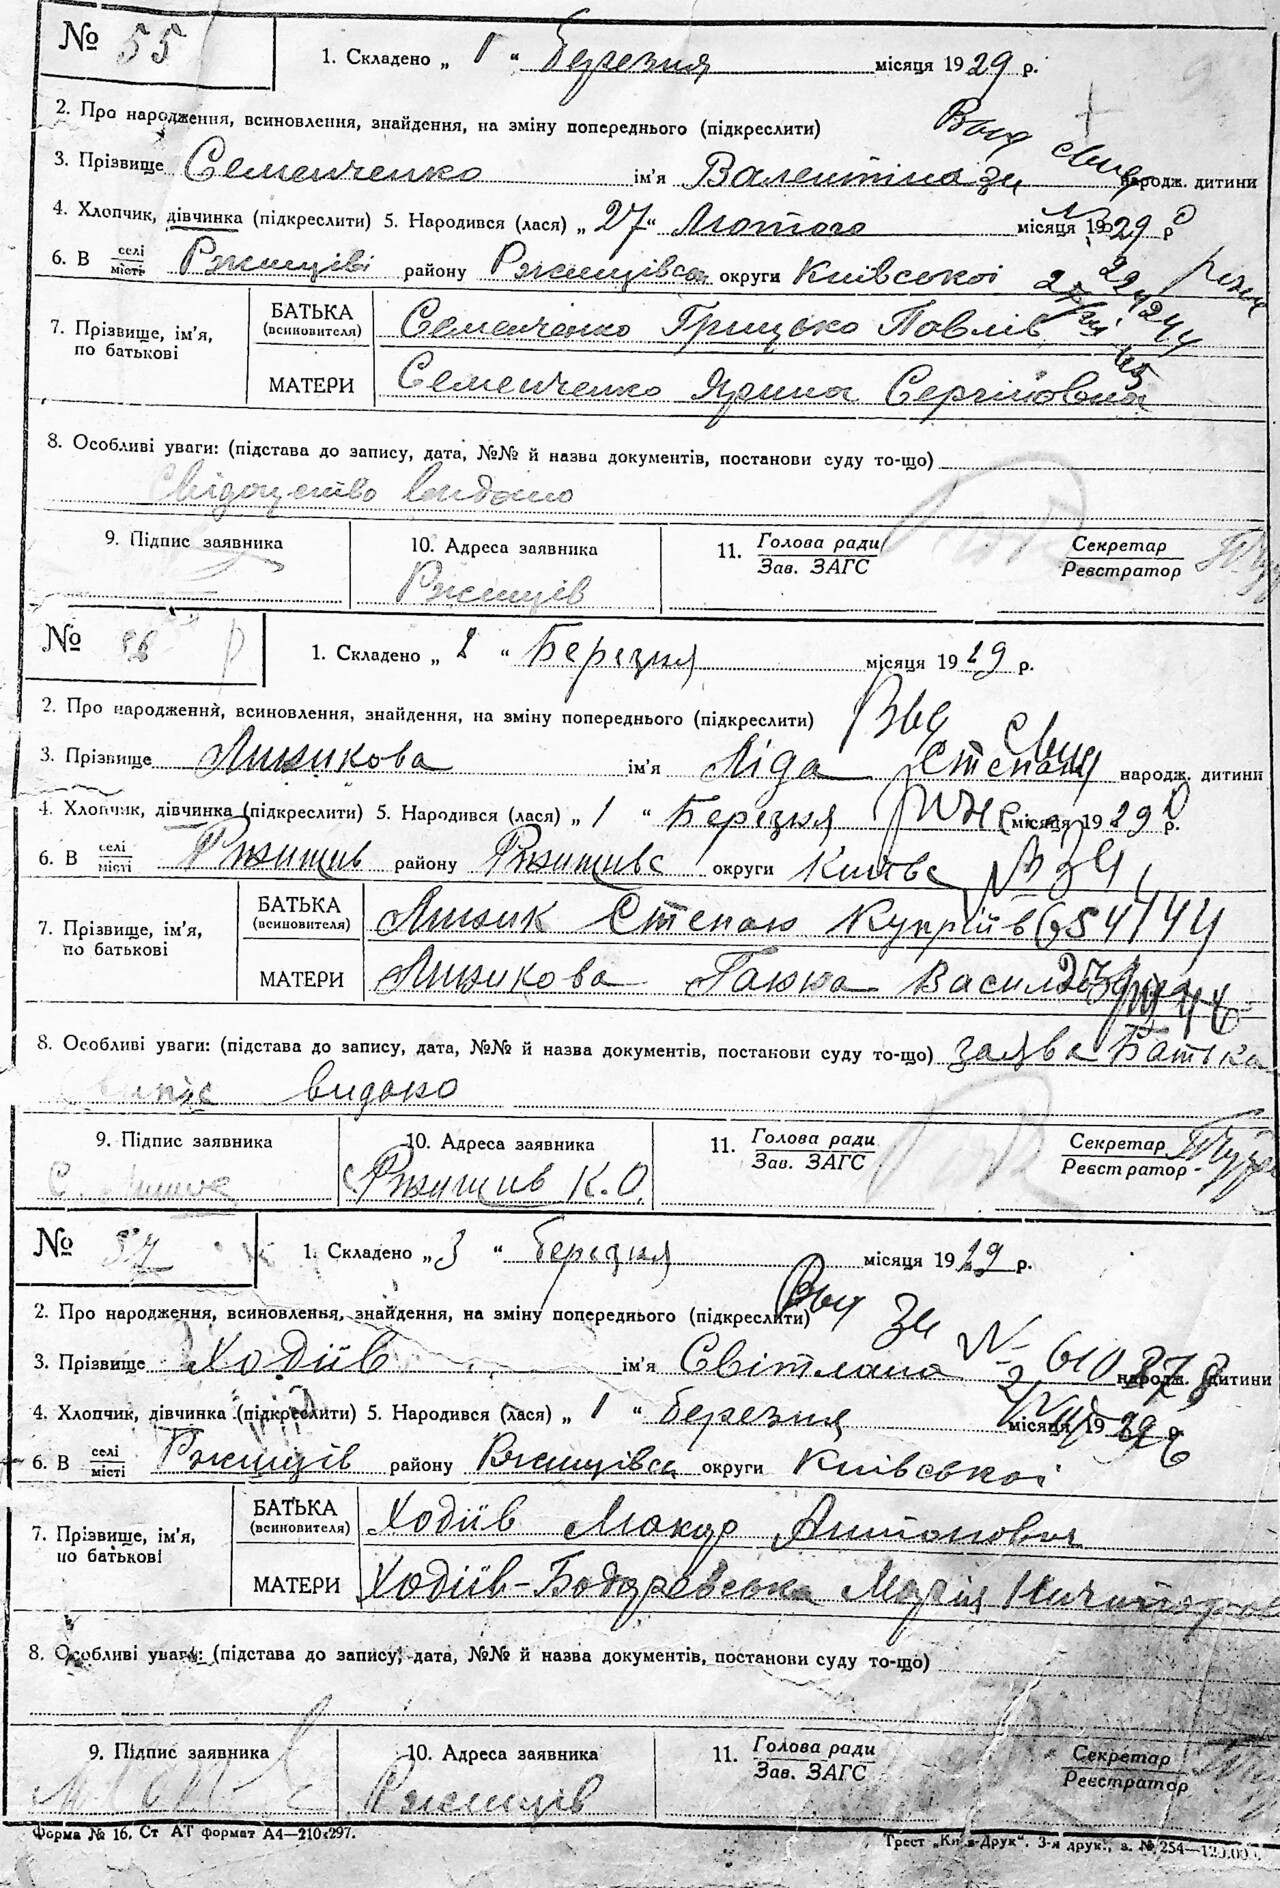 № 55
1. Складено „ 1 “ Березня місяця 1929 р.
2. Про народження, всиновлення, знайдення, на зміну попереднього (підкреслити)
Выд свид
3. Прізвище Семенченко ім'я Валентіна народж. дитини
4. Хлопчик, дівчинка (підкреслити) 5. Народився (лася) „ 27 “ Лютого місяця 1929 р
6. В селі/місті Ржищіві району Ржищівськ округи Київської
7. Прізвище, ім'я, по батькові
БАТЬКА (всиновителя) Семенченко Грицько Павлів
МАТЕРИ Семенченко Ярина Сергіївна
8. Особливі уваги: (підстава до запису, дата, №№ й назва документів, постанови суду то-що)
Свідоцтво видано
9. Підпис заявника
10. Адреса заявника
Ржищів
11. Голова ради
Зав. ЗАГС
Секретар
Реєстратор
№ 56
1. Складено „ 2 “ Березня місяця 1929 р.
2. Про народження, всиновлення, знайдення, на зміну попереднього (підкреслити)
Выд свид
3. Прізвище Лизикова ім'я Ліда Степан народж. дитини
4. Хлопчик, дівчинка (підкреслити) 5. Народився (лася) „ 1 “ Березня місяця 1929 р.
6. В селі/місті Ржищив району Ржищивс округи Київс
7. Прізвище, ім'я, по батькові
БАТЬКА (всиновителя) Лизик Степан Купріїв
МАТЕРИ Лизикова Ганна
8. Особливі уваги: (підстава до запису, дата, №№ й назва документів, постанови суду то-що) заява Батька
видано
9. Підпис заявника
10. Адреса заявника
Ржищив К.О.
11. Голова ради
Зав. ЗАГС
Секретар
Реєстратор
№ 57
1. Складено „ 3 “ березня місяця 1929 р.
2. Про народження, всиновлення, знайдення, на зміну попереднього (підкреслити)
Выд
3. Прізвище Ходіїв ім'я Світлана народж. дитини
4. Хлопчик, дівчинка (підкреслити) 5. Народився (лася) „ 1 “ березня місяця 1929 р.
6. В селі/місті Ржищів району Ржищівськ округи Київської
7. Прізвище, ім'я, по батькові
БАТЬКА (всиновителя) Ходіїв Макар Антонович
МАТЕРИ Ходіїв-Бодаревська Марія
8. Особливі уваги: (підстава до запису, дата, №№ й назва документів, постанови суду то-що)
9. Підпис заявника
10. Адреса заявника
Ржищів
11. Голова ради
Зав. ЗАГС
Секретар
Реєстратор
Форма № 16. Ст АТ формат А4—210×297.
Трест „Київ-Друк“. 3-я друк., з. № 254—